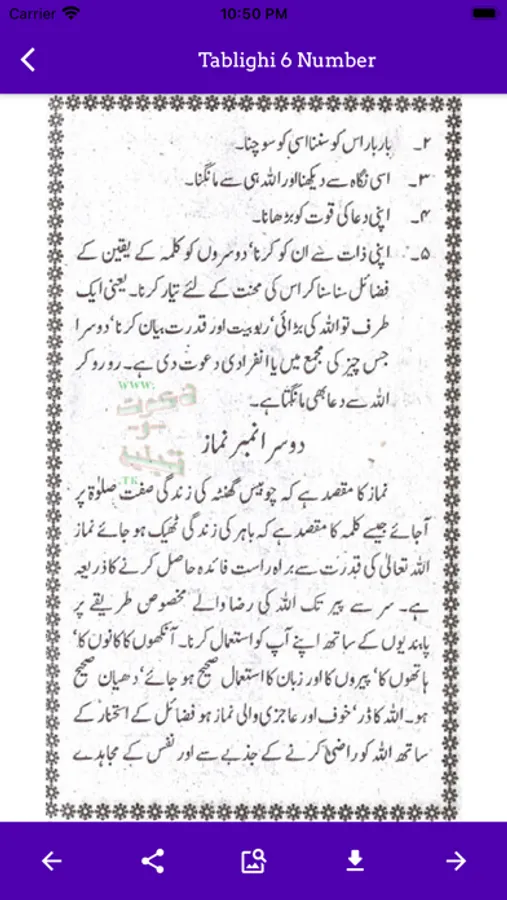 Carrier 10:50 PM
Tablighi 6 Number
۲۔ بار بار اس کو سننا اسی کو سوچنا۔
۳۔ اسی نگاہ سے دیکھنا اور اللہ ہی سے مانگنا۔
۴۔ اپنی دعا کی قوت کو بڑھانا۔
۵۔ اپنی ذات سے ان کو کرنا‘ دوسروں کو کلمہ کے یقین کے
فضائل سنا سنا کر اس کی محنت کے لئے تیار کرنا۔ یعنی ایک
طرف تو اللہ کی بڑائی‘ ربوبیت اور قدرت بیان کرنا‘ دوسرا
جس چیز کی مجمع میں یا انفرادی دعوت دی ہے۔ رو رو کر
اللہ سے دعا بھی مانگنا ہے۔
WWW.
.TK
دوسرا نمبر نماز
نماز کا مقصد ہے کہ چوبیس گھنٹہ کی زندگی صفت صلوٰۃ پر
آجائے جیسے کلمہ کا مقصد ہے کہ باہر کی زندگی ٹھیک ہو جائے نماز
اللہ تعالیٰ کی قدرت سے براہ راست فائدہ حاصل کرنے کا ذریعہ
ہے۔ سر سے پیر تک اللہ کی رضا والے مخصوص طریقے پر
پابندیوں کے ساتھ اپنے آپ کو استعمال کرنا۔ آنکھوں کا کانوں کا‘
ہاتھوں کا‘ پیروں کا اور زبان کا استعمال صحیح ہو جائے‘ دھیان صحیح
ہو۔ اللہ کا ڈر‘ خوف اور عاجزی والی نماز ہو فضائل کے استحضار کے
ساتھ اللہ کو راضی کرنے کے جذبے سے اور نفس کے مجاہدے